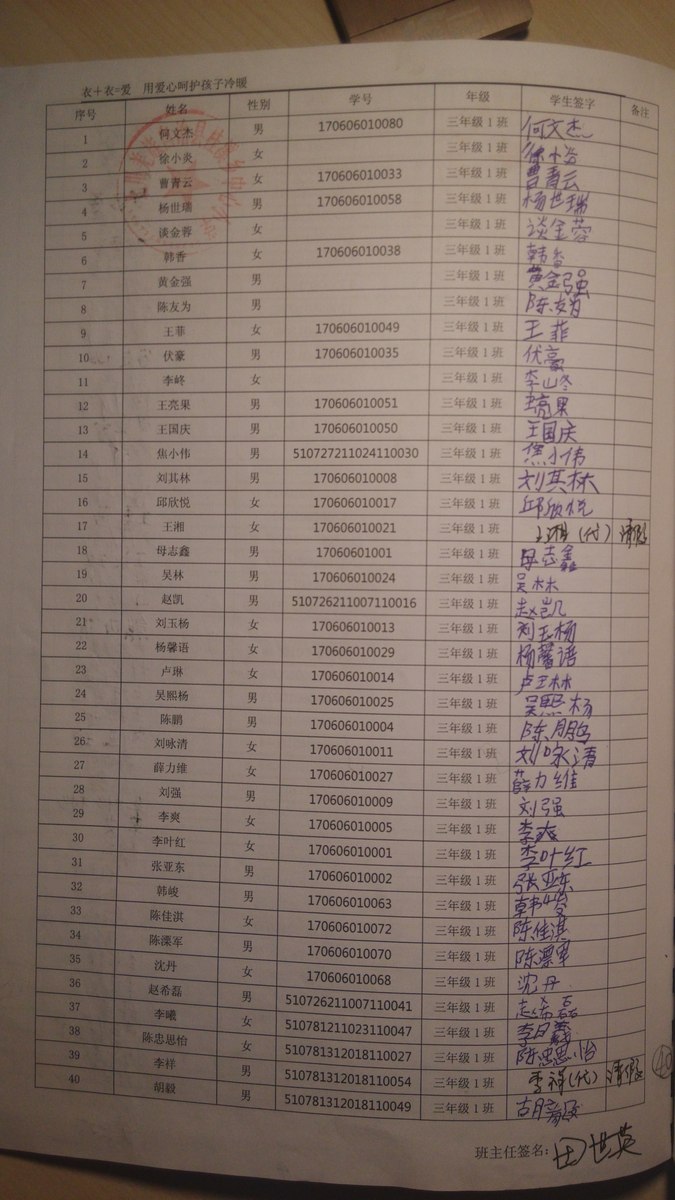 衣+衣=爱 用爱心呵护孩子冷暖
序号 姓名 性别 学号 年级 学生签字 备注
1 何文杰 男 170606010080 三年级1班 何文杰
2 徐小炎 女 三年级1班 徐小炎
3 曹青云 女 170606010033 三年级1班 曹青云
4 杨世瑞 男 170606010058 三年级1班 杨世瑞
5 谈金蓉 女 三年级1班 谈金蓉
6 韩香 女 170606010038 三年级1班 韩香
7 黄金强 男 三年级1班 黄金强
8 陈友为 男 三年级1班
9 王菲 女 170606010049 三年级1班 王菲
10 伏豪 男 170606010035 三年级1班 伏豪
11 李峂 女 三年级1班 李峂
12 王亮果 男 170606010051 三年级1班 王亮果
13 王国庆 男 170606010050 三年级1班 王国庆
14 焦小伟 男 510727211024110030 三年级1班 焦小伟
15 刘其林 男 170606010008 三年级1班 刘其林
16 邱欣悦 女 170606010017 三年级1班 邱欣悦
17 王湘 女 170606010021 三年级1班 王湘(代) 请假
18 母志鑫 男 1706061001 三年级1班 母志鑫
19 吴林 男 170606010024 三年级1班 吴林
20 赵凯 男 510726211007110016 三年级1班 赵凯
21 刘玉杨 女 170606010013 三年级1班 刘玉杨
22 杨馨语 女 170606010029 三年级1班 杨馨语
23 卢琳 女 170606010014 三年级1班 卢琳
24 吴熙杨 男 170606010025 三年级1班 吴熙杨
25 陈鹏 男 170606010004 三年级1班 陈鹏
26 刘咏清 女 170606010011 三年级1班 刘咏清
27 薛力维 女 170606010027 三年级1班 薛力维
28 刘强 男 170606010009 三年级1班 刘强
29 李爽 女 170606010005 三年级1班 李爽
30 李叶红 女 170606010001 三年级1班 李叶红
31 张亚东 男 170606010002 三年级1班 张亚东
32 韩峻 男 170606010063 三年级1班 韩峻
33 陈佳淇 女 170606010072 三年级1班 陈佳淇
34 陈溧军 男 170606010070 三年级1班 陈溧军
35 沈丹 女 170606010068 三年级1班 沈丹
36 赵希磊 男 510726211007110041 三年级1班 赵希磊
37 李曦 女 510781211023110047 三年级1班 李曦
38 陈忠思怡 女 510781312018110027 三年级1班 陈忠思怡
39 李祥 男 510781312018110054 三年级1班 李祥(代) 请假
40 胡毅 男 510781312018110049 三年级1班 胡毅
40
班主任签名: 田世英